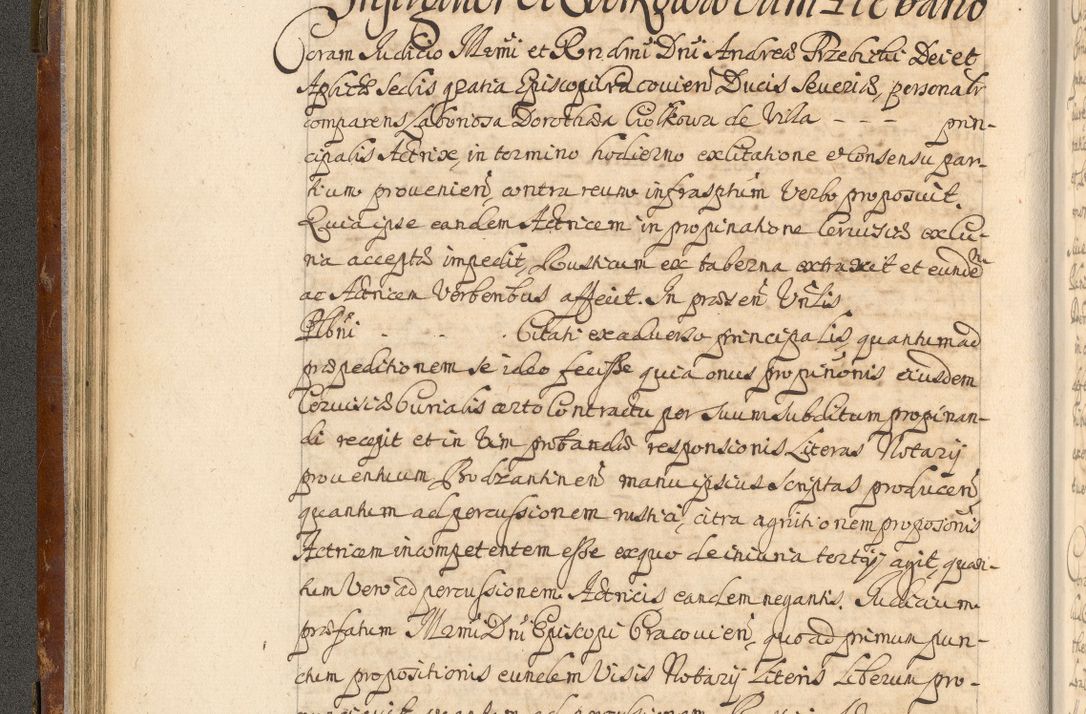 Coram Judicio Illmi et Rndmi Dni Andreæ Trzebicki Dei et
Aplicæ Sedis gratia Episcopi Cracovien Ducis Severiæ, personalr
comparens Laboriosa Dorothæa Ciolkowa de Villa - - - prin-
cipalis Actrix, in termino hodierno ex citatione et consensu par-
tium provenien, contra reum infrasptum verbo proposuit.
Quia ipse eandem Actricem in propinatione Cervisiæ ex Cu-
ria acceptæ impedit, Rusticum ex taberna extraxit et eunde
ac Actricem verberibus affecit. In præsen Vnlis
Plbni - - . Citati ex adverso principalis, quantum ad
præpeditionem se ideo fecisse quia onus propinonis eiusdem
Cervisiæ Curialis certo Contractu per suum subditum propinan-
di recepit et in vim probandæ responsionis Literas Notarij
proventuum Bodzantinen manu ipsius scriptas producen,
quantum ad percussionem rustici, citra agnitionem proposonis
Actricem incompetentem esse ex quo de iniuria tertij agit, quan-
tum vero ad percussionem Actricis eandem negantis. Judicium
præfatum Illmi Dni Episcopi Cracovien, quo ad primum pun-
ctum propositionis eundem visis Notarij Literis Liberum pro-